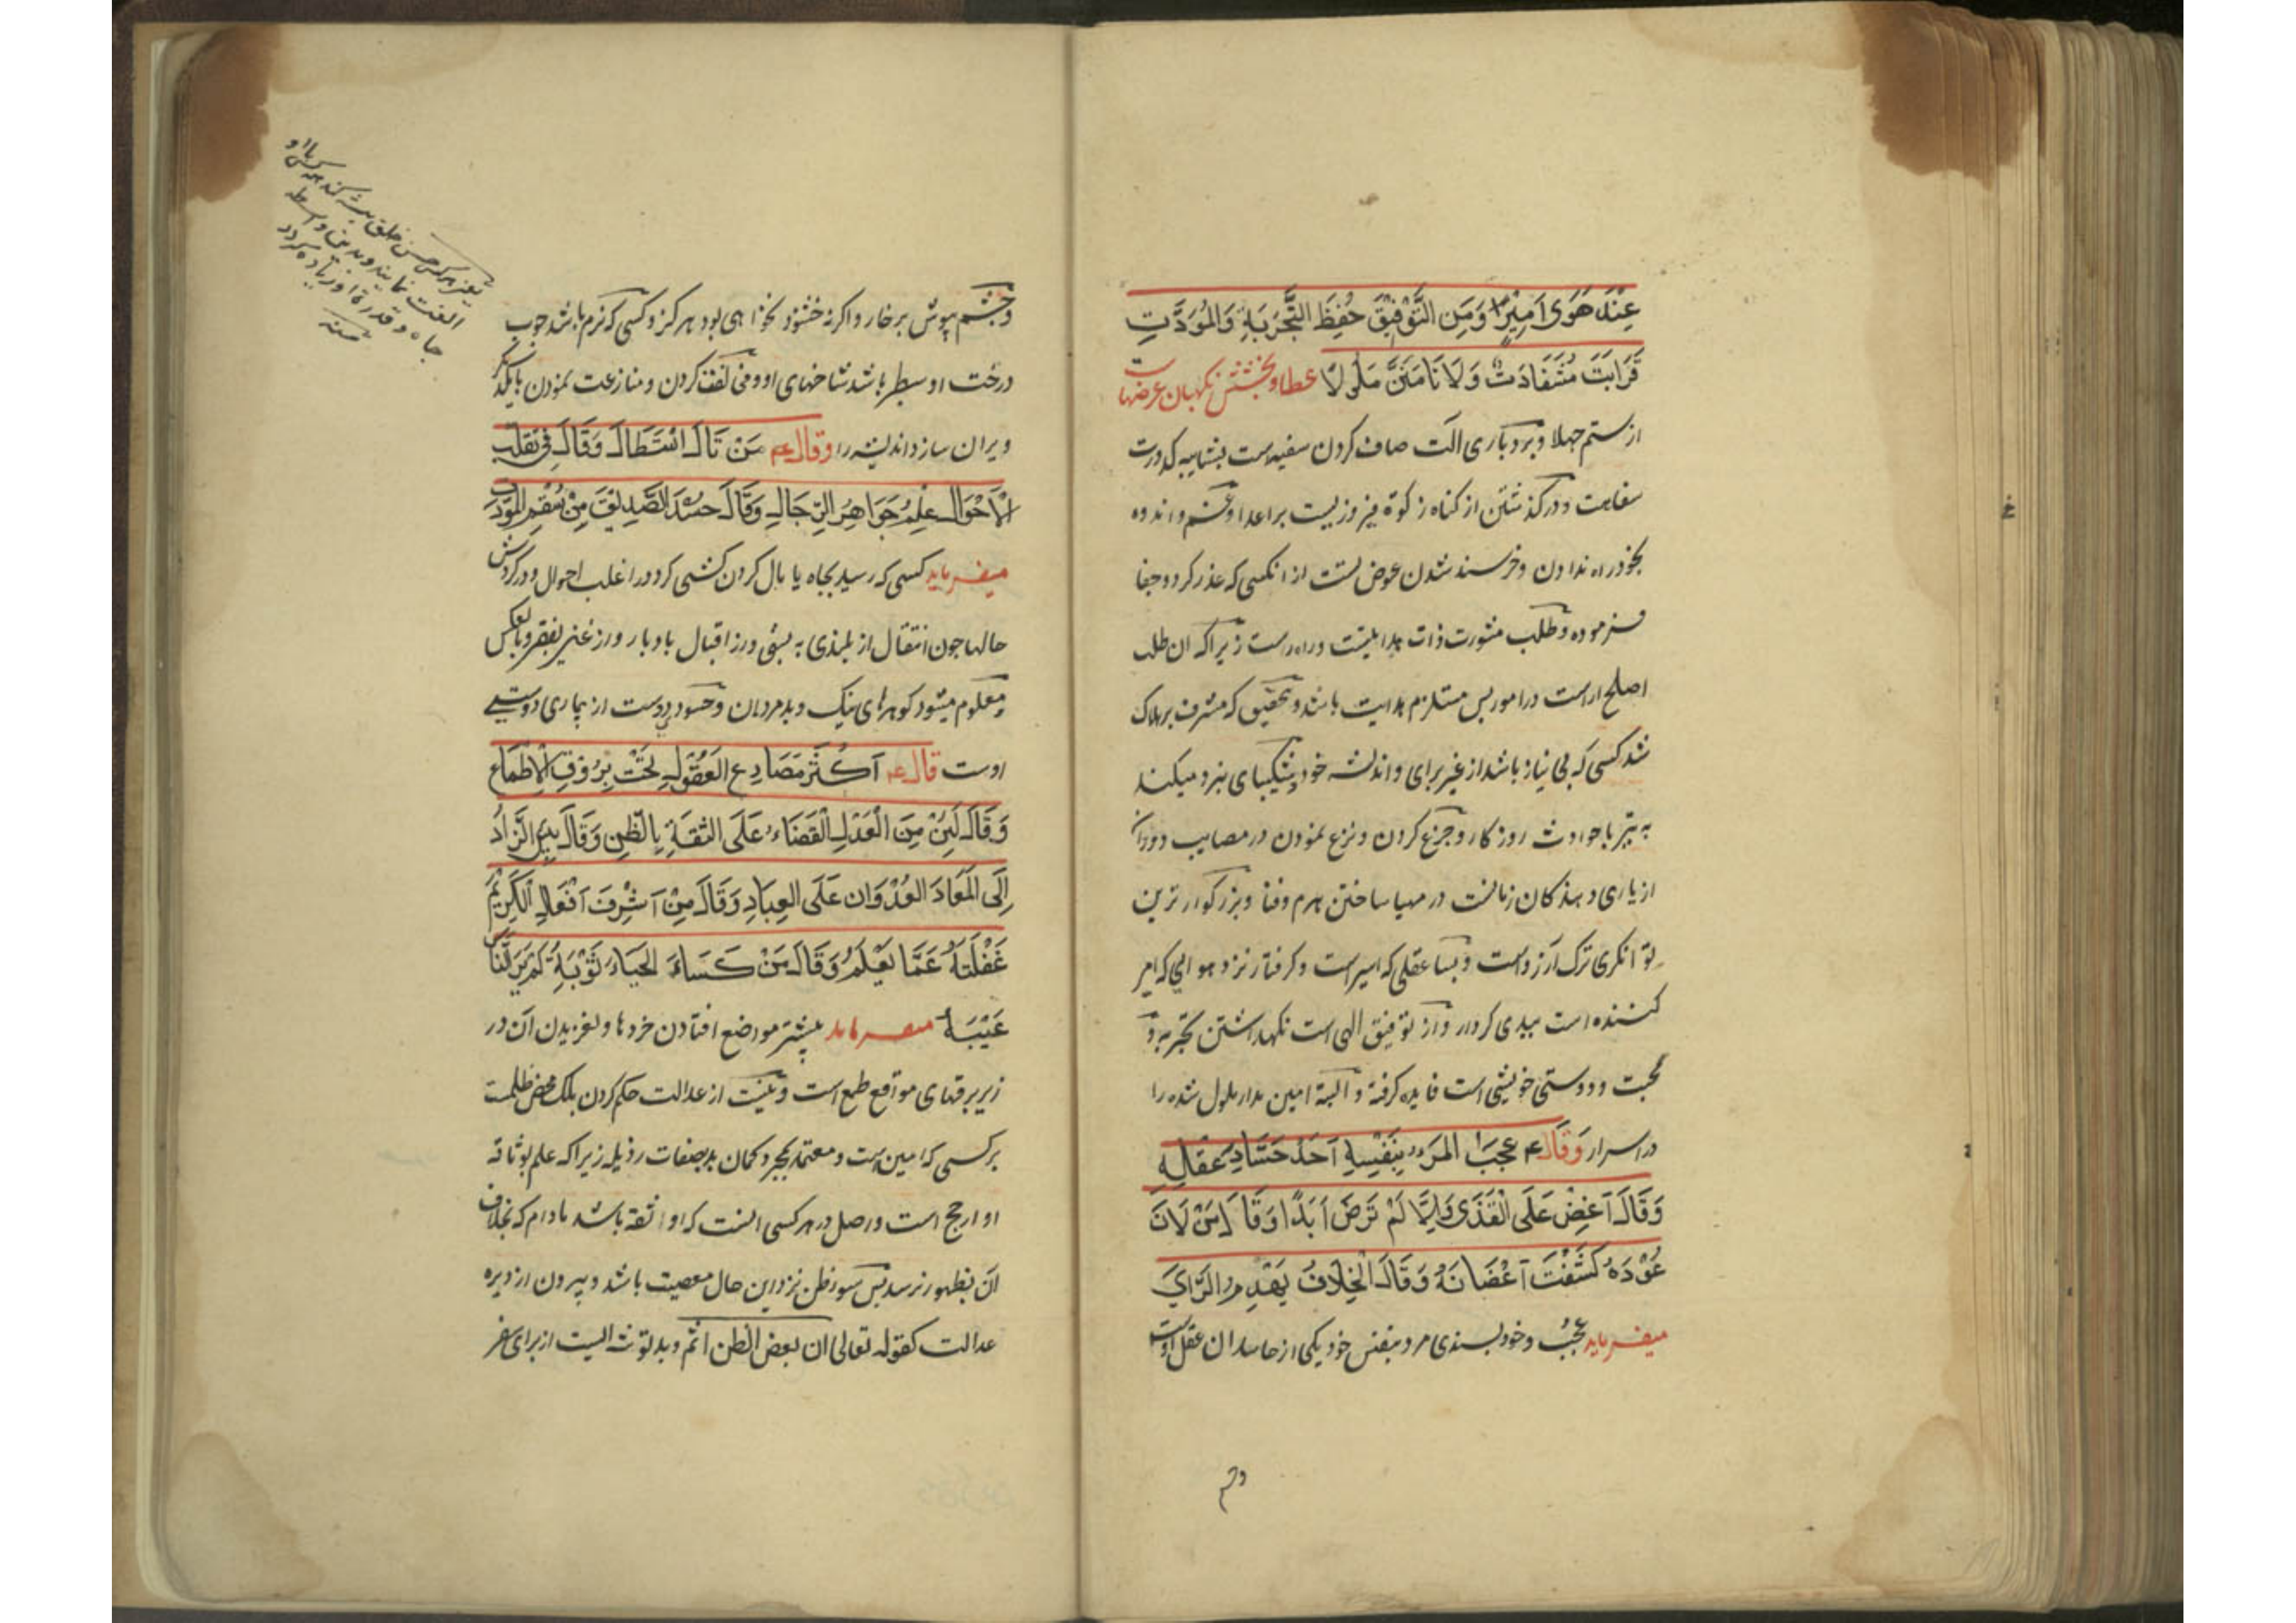 عِنْدَ هَوَى اَمِيْرٍ وَمِنَ التَّوْفِيْقِ حُفِظَ التَّجْرِبَةِ وَالمُوَدَّتِ
قَرَابَتَ مُسْتَفَادَتٌ وَلَا تَامَنَنَّ مَلُولًا عطا و بخشش نکهبان عرضهاست
از ستم جهلا و بردباری الت صاف کردن سفیه است بشایبه کدورت
سفاهت و درکذشتن از کناه زکوة فیروزیست بر اعدا و غم و اندوه
بخود راه ندادن و خرسند شدن عوض تست از انکسی که عذر کرد و جفا
فرموده و طلب مشورت ذات هدایتست و راه راست زیرا که ان طلب
اصلح اراست در امور پس مستلزم هدایت باشد و تحقیق که مشرف بر هلاک
شد کسی که بی نیاز باشد از غیر برای و اندیشه خود و شکیبای نبرد میکند
به تیر با حوادث روزکار و جزع کردن و نزع نمودن در مصایب دوران
از یاری دهندکان زمانست در مهیا ساختن هرم و فنا و بزرکوار ترین
توانکری ترک آرزو است و بسا عقلی که اسیر است و کرفتار نزد هوایی که امیر
کننده است ببدی کردار و از توفیق الهی است نکهداشتن تجربه و
محبت و دوستی خویشی است فایده کرفته و البته امین مدار ملول شده را
در اسرار وَقَالَ ع عجبَ المَرْءِ بِنَفْسِهِ اَحَدُ حَسَّادِ عَقْلِهِ
وَقَالَ اَغِضْ عَلَى الْقَذَى وَاِلَّا لَمْ تَرْضَ اَبَدًا وَقَالَ مَنْ لَانَ
عُوْدَهُ كَثُفَتْ اَغْصَانَهُ وَقَالَ الْخِلَافُ يَهْدِمُ الرَّاْيَ
میفرماید عُجْب و خود پسندی مرد بنفس خود یکی از حاسدان عقل اوست
و چشم بپوش بر خار و اکر نه خشنود نخواهی بود هرکز و کسی که نرم باشد چوب
درخت او سطبر باشد شاخهای او و مخالفت کردن و منازعت نمودن با یکدیکر
ویران سازد اندیشه را وقال ع مَنْ نَالَ اسْتَطَالَ وَقَالَ فِى تَقَلُّبِ
الْاَحْوَالِ عِلْمُ جَوَاهِرِ الرِّجَالِ وَقَالَ حَسَدُ الصَّدِيْقِ مِنْ سُقْمِ الْمَوَدَّتِ
میفرماید کسی که رسید بجاه یا بال کردن کشی کرد و در اغلب احوال و در کردش
حالها چون انتقال از بلندی به پستی و از اقبال بادبار و از غنی بفقر و بالعکس
معلوم میشود کوهرهای نیک و بد مردمان و حسود دوست از بیماری دوستی
اوست قال ع اَكْثَرُ مَصَارِعِ الْعُقُوْلِ تَحْتَ بُرُوْقِ الْاَطْمَاعِ
وَقَالَ لَيْسَ مِنَ الْعَدْلِ الْقَضَاءُ عَلَى الثِّقَةِ بِالظَّنِ وَقَالَ بِئْسَ الزَّادُ
اِلَى الْمَعَادِ الْعُدْوَان عَلَى الْعِبَادِ وَقَالَ مِنْ اَشْرِفَ اَفْعَالِ الْكَرِيْمِ
غَفْلَتَهُ عَمَّا يَعْلَمُ وَقَالَ مَنْ كَسَاءَ الْحَيَاءُ ثَوْبَهُ لَمْ يَرَ النَّاسُ
عَيْبَهُ میفرماید بیشتر مواضع افتادن خردها و لغزیدن آن در
زیر برقهای مواقع طمع است و نیست از عدالت حکم کردن بلکه محض ظلمست
بر کسی که امین است و معتمد بمجرد کمان بد بصفات رذیله زیرا که علم بوثاقه
او ارجح است و اصل در هر کسی انست که او ثقه باشد مادام که بخلاف
ان بظهور نرسد پس سوءظن نزد این حال معصیت باشد و بیرون از دایره
عدالت کقوله تعالی ان بعض الظن اثم و بد توشه ایست از برای سفر
یعنی هرکس حسن خلق پیشه کند همه کس با او
الفت نمایند و بدین واسطه
جاه و قدر او زیاده کردد
منه
و چشم